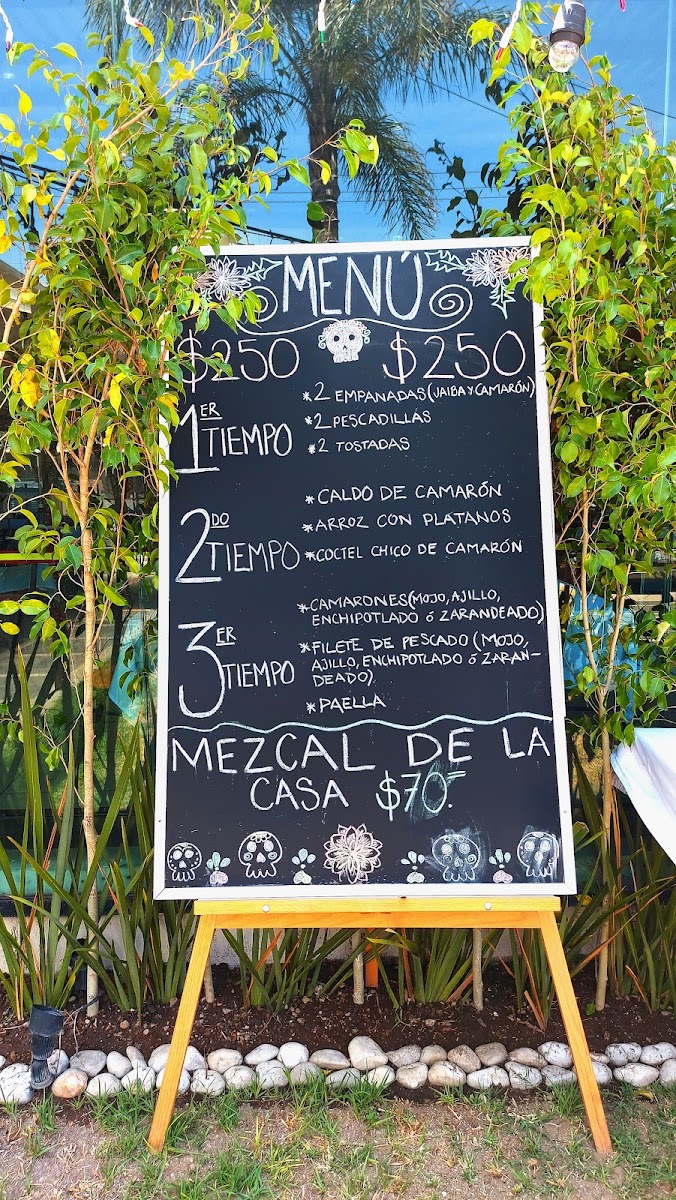 MENÚ
$250 $250
1ER TIEMPO
*2 EMPANADAS (JAIBA Y CAMARÓN)
*2 PESCADILLAS
*2 TOSTADAS
2DO TIEMPO
*CALDO DE CAMARÓN
*ARROZ CON PLATANOS
*COCTEL CHICO DE CAMARÓN
3ER TIEMPO
*CAMARONES (MOJO, AJILLO,
ENCHIPOTLADO ó ZARANDEADO)
*FILETE DE PESCADO (MOJO,
AJILLO, ENCHIPOTLADO ó ZARAN-
DEADO)
*PAELLA
MEZCAL DE LA
CASA $70.-